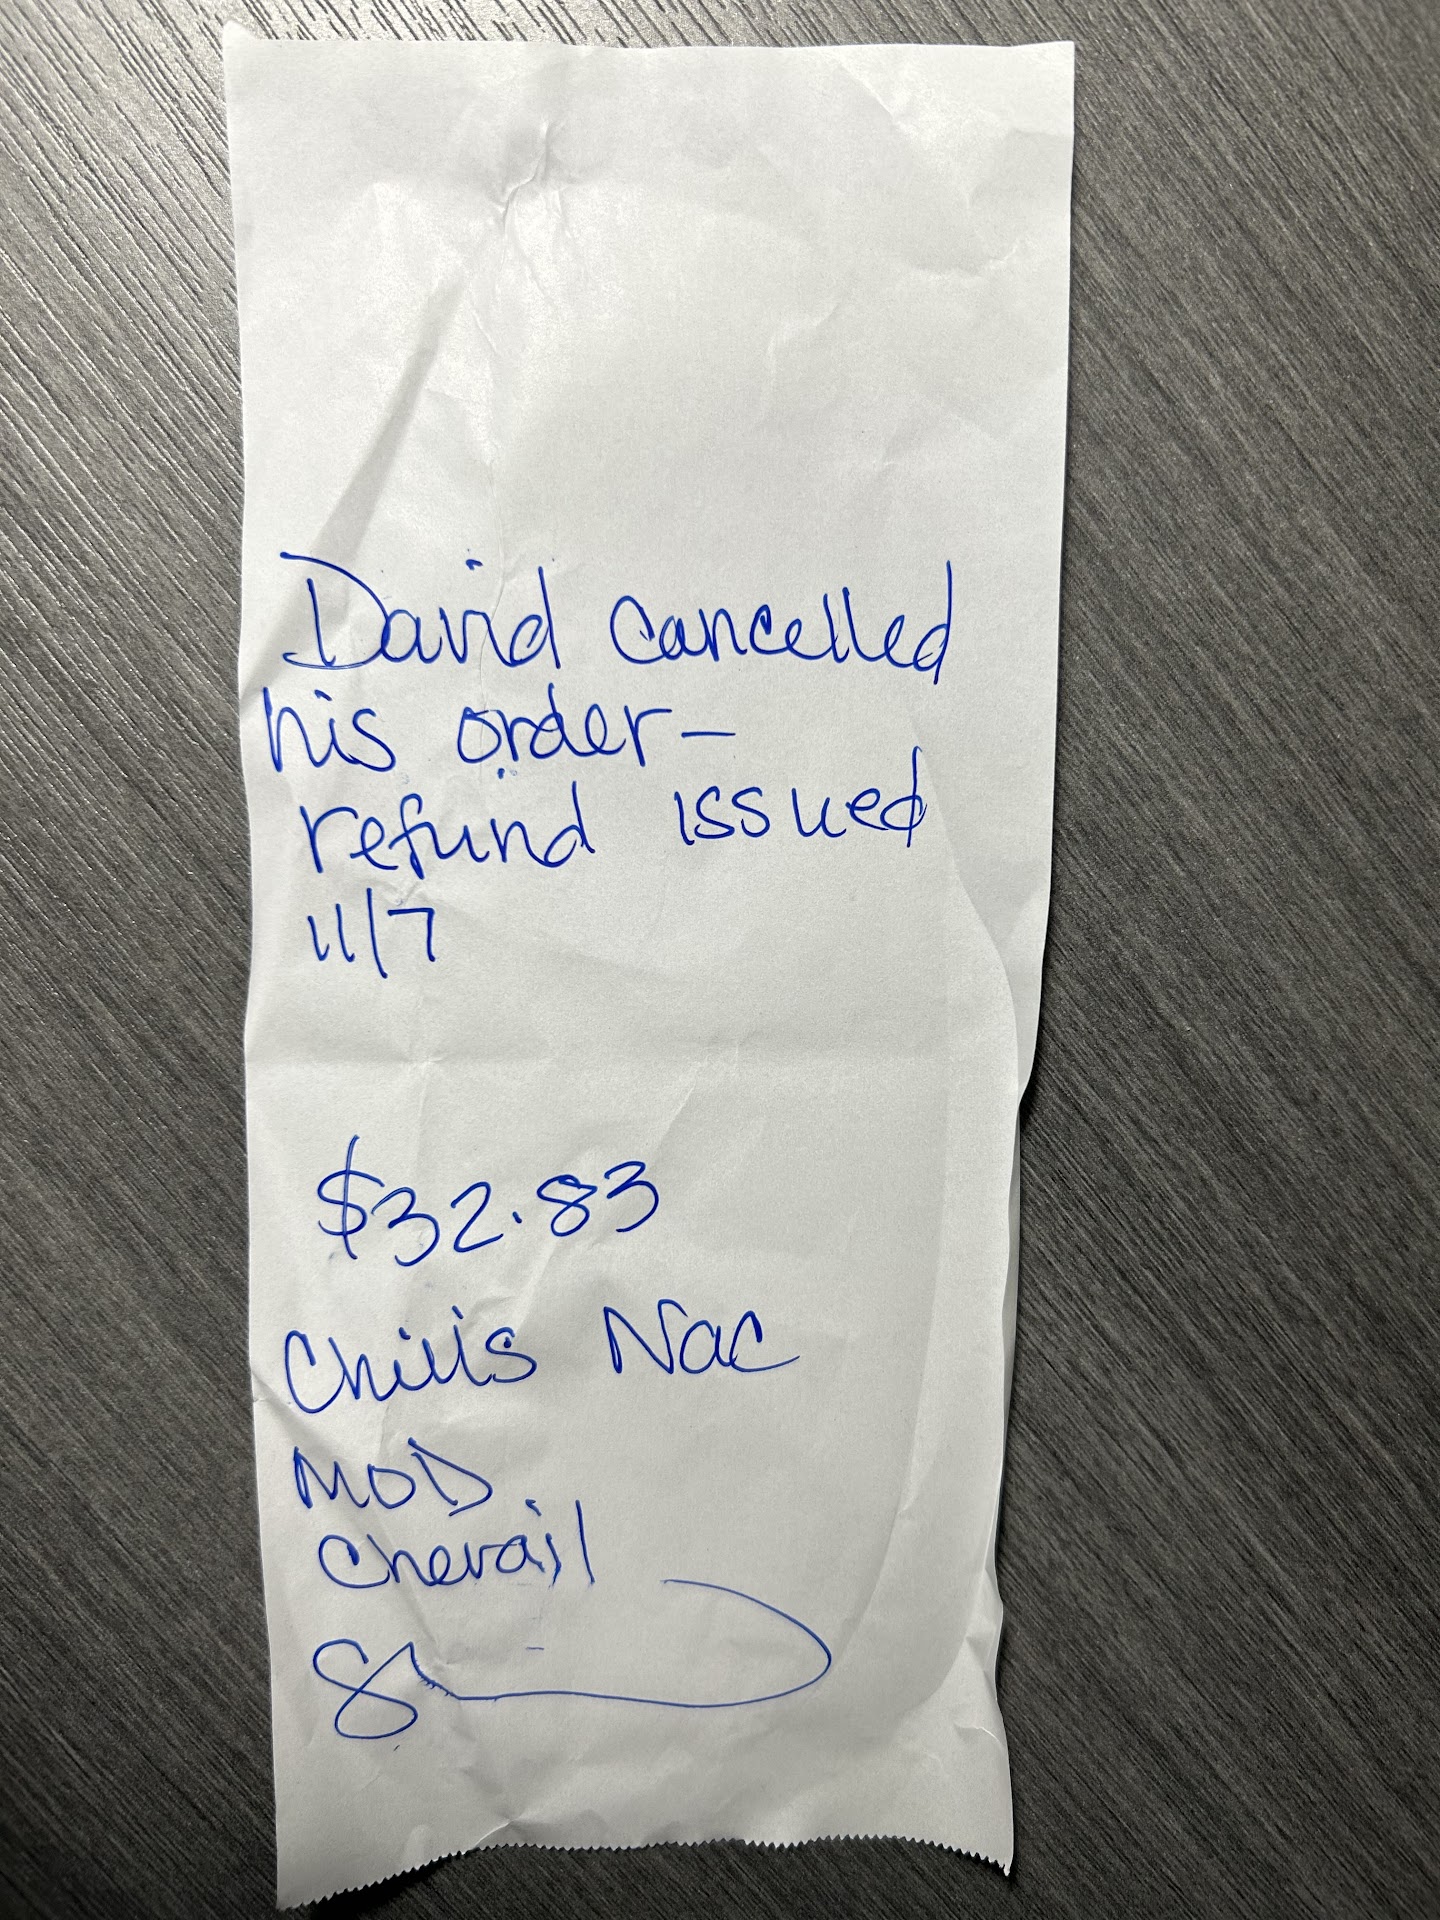 David cancelled
his order-
refund issued
11/7
$32.83
Chili's Nac
MOD
Chevail